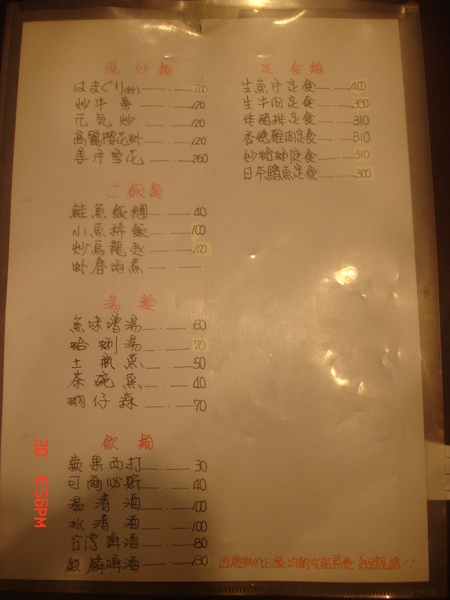 はまぐり(炒) 200
炒牛蒡 120
元気炒 120
120
薑片雪花 260
ご飯類
鮭魚飯糰 40
小魚拌飯 100
炒烏龍麵 100
湯類
魚味噌湯 60
哈蜊湯 70
土瓶蒸 50
茶碗蒸 40
70
飲類
蘋果西打 30
可爾必斯 40
溫清酒 100
冰清酒 100
台灣啤酒 80
麒麟啤酒 130
定食類
生魚片定食 400
生牛肉定食 330
烤豬排定食 310
香煎雞肉定食 310
炒哈蜊定食 310
日本鯖魚定食 300
30 6:56PM